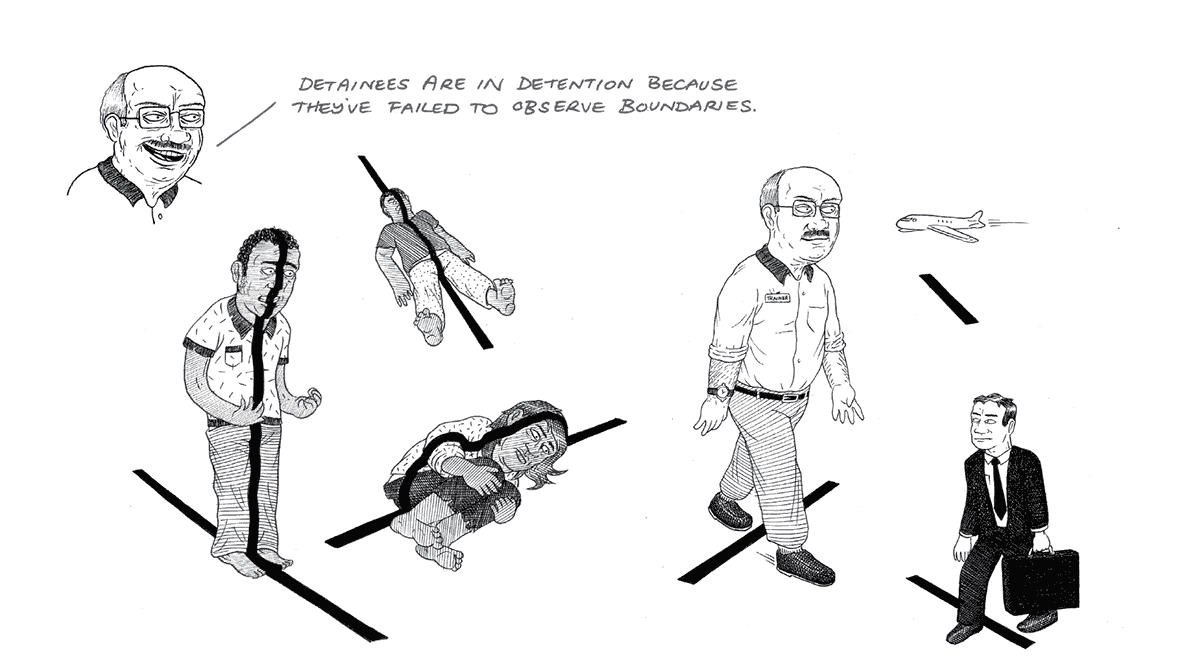 DETAINEES ARE IN DETENTION BECAUSE
THEY'VE FAILED TO OBSERVE BOUNDARIES.
TRAINER